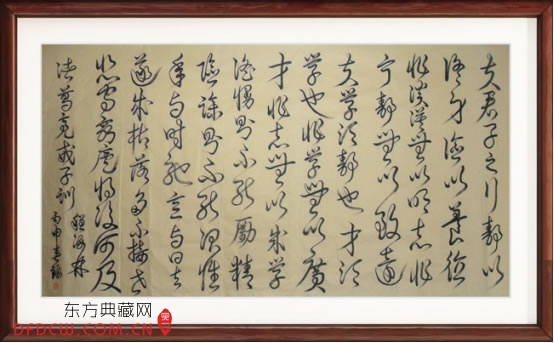 夫君子之行静以
修身俭以养德
非淡泊無以明志非
宁静無以致远
夫学须静也才须
学也非学無以广
才非志無以成学
淫慢则不能励精
险躁则不能冶性
年与时驰意与日去
遂成枯落多不接世
悲守穷庐将复何及
诸葛亮戒子训
丙申
东方典藏网
DFDCW.COM.CN